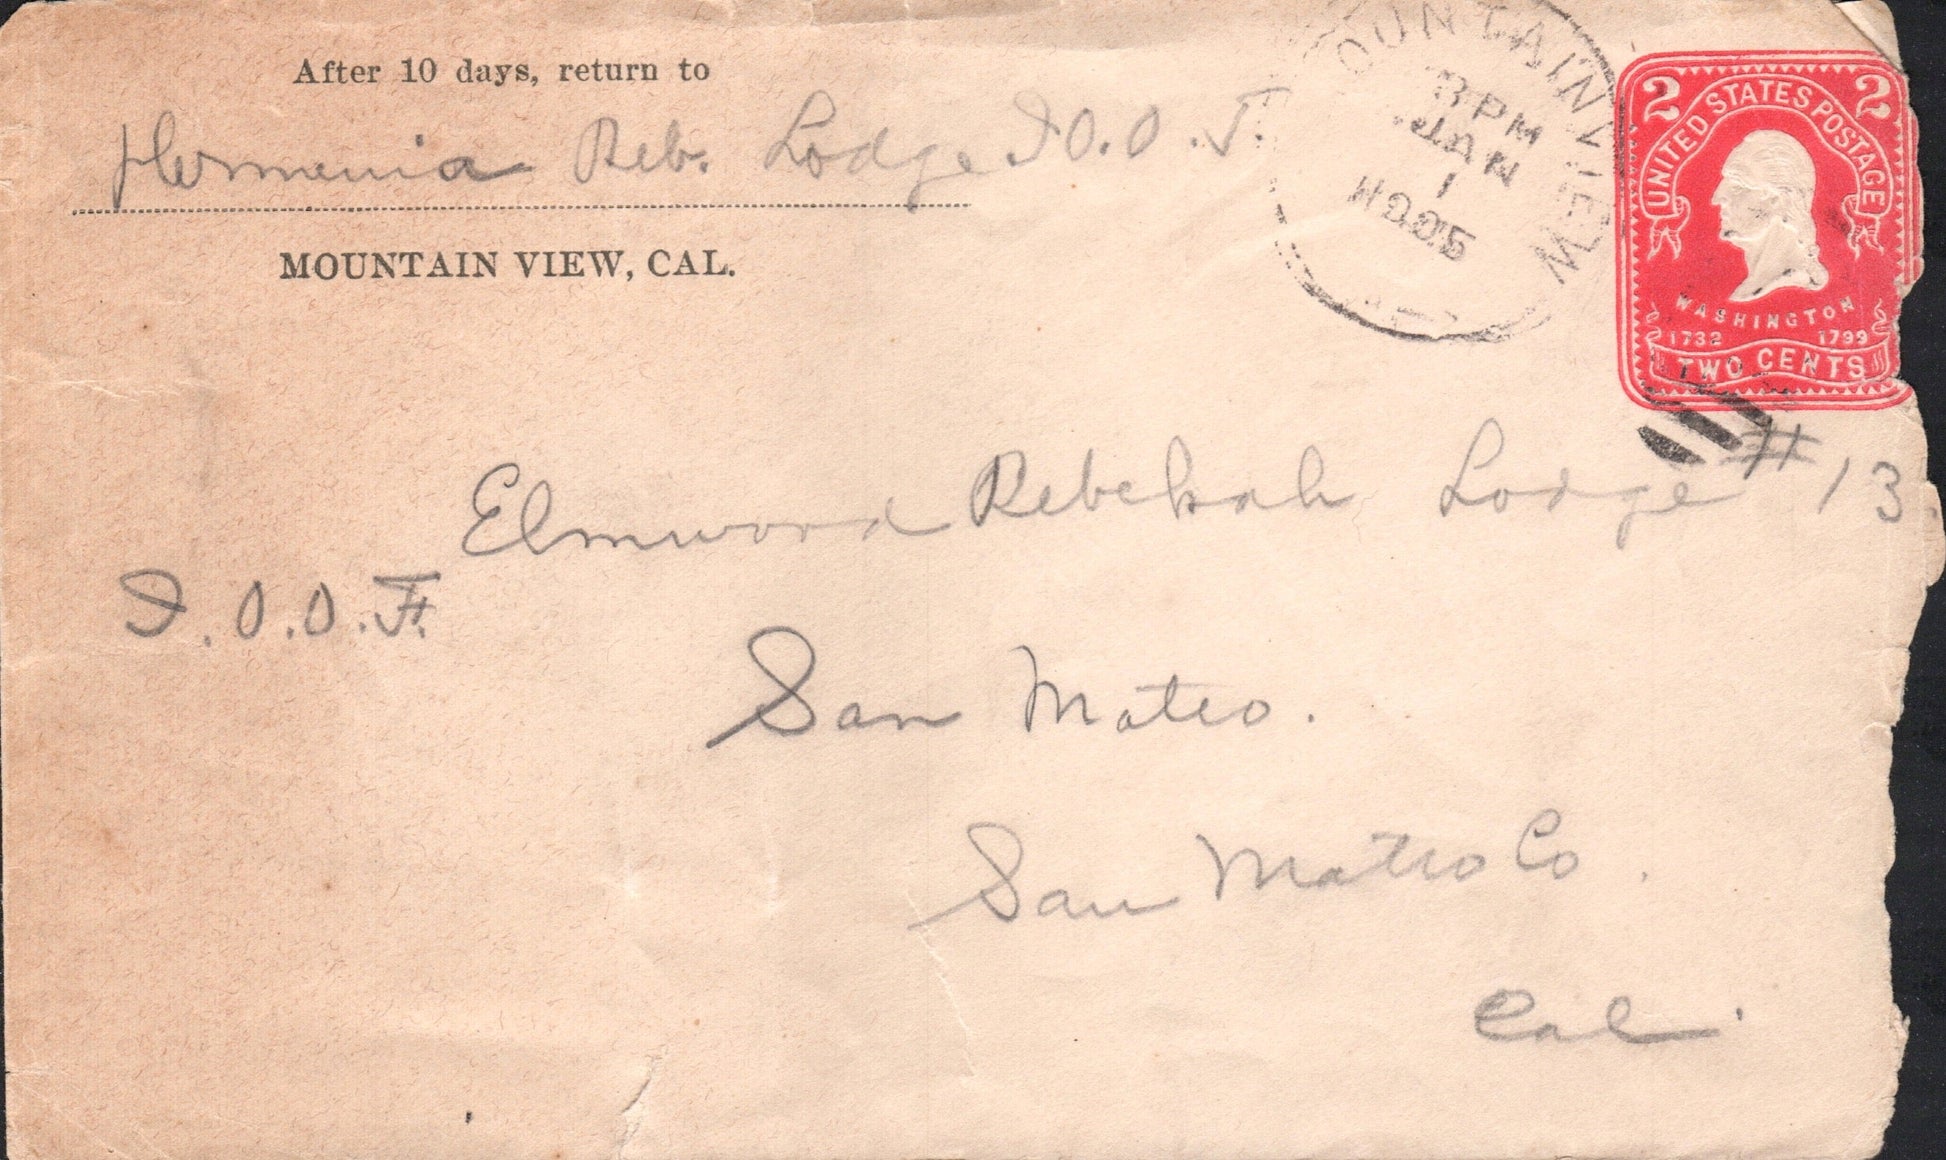 After 10 days, return to
Hermenia Reb. Lodge I O. O. F.
MOUNTAIN VIEW, CAL.
OUNTAIN VIEW
3 PM
JAN
1
2 2
UNITED STATES POSTAGE
WASHINGTON
1732 1799
TWO CENTS
Elmwood Rebekah Lodge # 13.
I. O. O. F.
San Mateo.
San Mateo Co.
Cal.